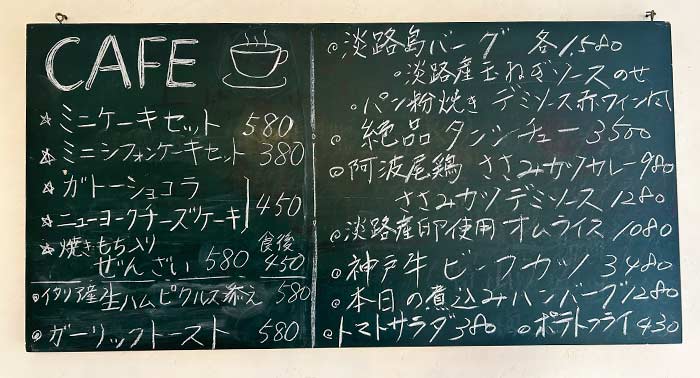 CAFE
☆ミニケーキセット 580
☆ミニシフォンケーキセット 380
☆ガトーショコラ
☆ニューヨークチーズケーキ 450
☆焼きもち入り 食後
ぜんざい 580 450
◦イタリア産生ハムピクルス添え 580
◦ガーリックトースト 580
◦淡路島バーグ 各1.580
◦淡路産玉ねぎソースのせ
◦パン粉焼き デミソース赤ワイン風
◦絶品タンシチュー 3500
◦阿波尾鶏 ささみカツカレー 980
ささみカツデミソース 1280
◦淡路産卵使用オムライス 1080
◦神戸牛ビーフカツ 3480
◦本日の煮込みハンバーグ 1280
◦トマトサラダ 380 ◦ポテトフライ 430